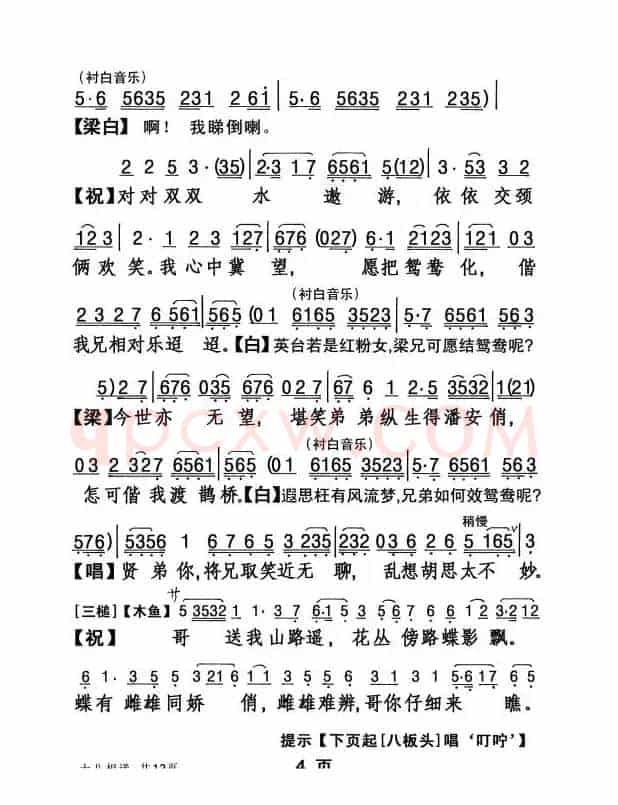 (衬白音乐)
5·6 5635 231 261 | 5·6 5635 231 235) |
【梁白】啊! 我睇倒喇。
2 2 5 3·(35) | 2·3 1 7 6561 5(12) | 3·53 3 2
【祝】对对双双 水 遨 游, 依依 交颈
123 | 2·1 2 3 1217 | 676 (027) 6·1 2123 | 121 03
俩欢笑。我心中冀 望, 愿把鸳鸯 化, 偕
(衬白音乐)
2 3 2 7 6 561 | 565 (01 6165 3523 | 5·7 6561 563
我兄相对乐迢 迢。【白】英台若是红粉女,梁兄可愿结鸳鸯呢?
5) 2 7 | 676 035 676 027 | 67·6 6 1 2·5 3532 | 1(21)
【梁】今世亦 无望, 堪笑弟 弟纵生得潘安俏,
(衬白音乐)
03 2 327 6561 | 565 (01 6165 3523 | 5·7 6561 563
怎可偕 我渡 鹊桥。【白】遐思枉有风流梦,兄弟如何效鸳鸯呢?
稍慢
576) | 5356 1 6 7 6 5 3 2535 | 232 03 6 2 5 165 | 3
【唱】贤 弟你,将兄取笑近无 聊, 乱想胡思太不 妙.
サ
[三槌]【木鱼】5 3532 1 1·3 7 6·1 5 3 5 6 7 6·1 1 2 3·2 12
【祝】 哥 送我山路遥, 花丛 傍路蝶影 飘。
6 1· 3 5 5 3 216 1 3 5 5 5 6 3 1 3 1 5·6 1 7
蝶有 雌雄同娇 俏, 雌雄难辨,哥你仔细来 瞧。
提示【下页起[八板头]唱‘叮咛’】
4 页